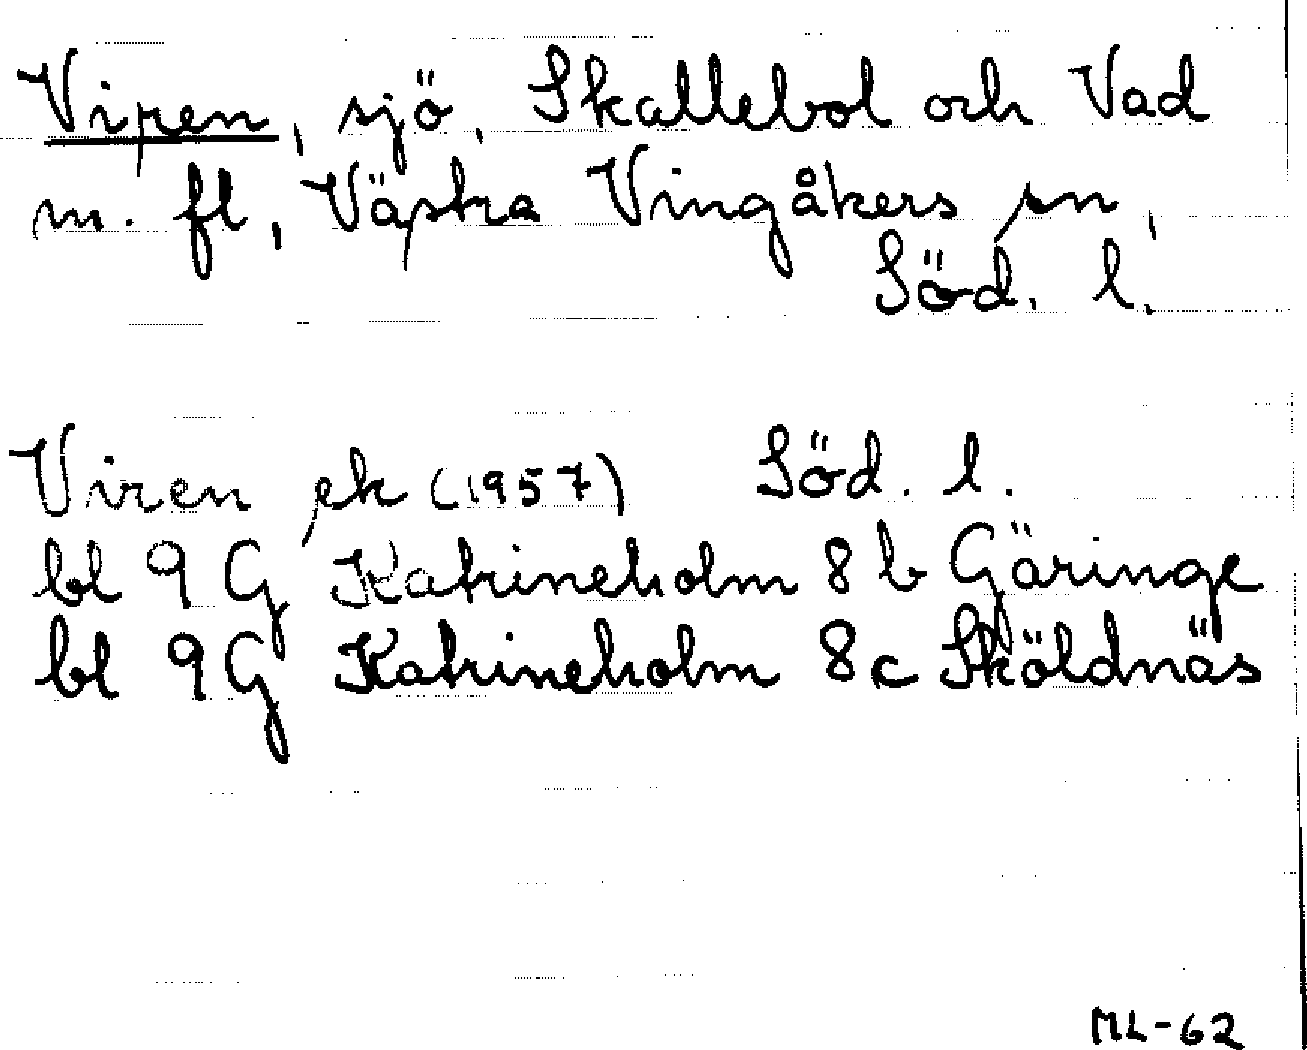 Viren, sjö, Skallebol och Vad
m. fl, Västra Vingåkers sn,
Söd. l.
Viren ek (1957) Söd. l.
bl 9 G Katrineholm 8 b Gäringe
bl 9 G Katrineholm 8 c Sköldnäs
ML-62